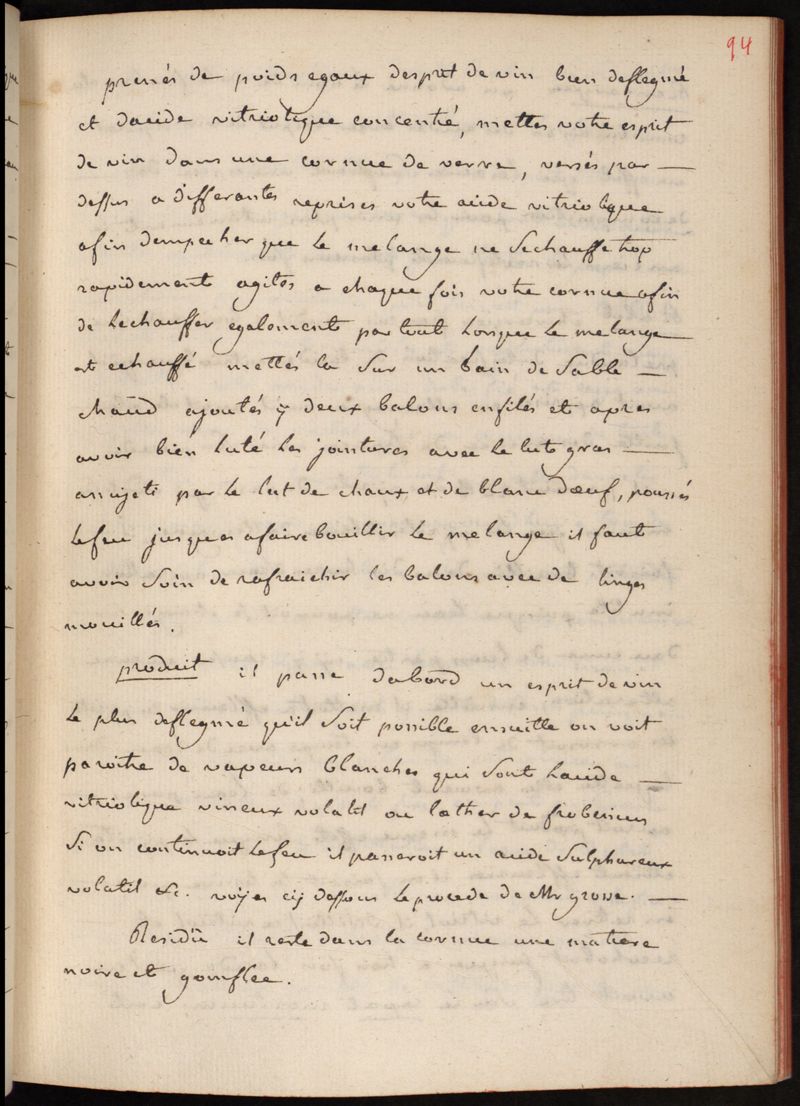 94
prenés de poids egaux desprit de vin bien deflegmé
et dacide vitriolique concentré, mettes votre esprit
de vin dans une cornue de verre, versés par —
dessus a differantes reprises votre acide vitriolique
afin dempecher que le melange ne Sechauffe trop
rapidement agités a chaque fois votre cornue afin
de lechauffer egalement partout lorsque le melange
est echauffé mettés la Sur un bain de Sable —
chaud ajoutés y deux balons enfilés et apres
avoir bien luté les jointures avec le lut gras —
assujeti par le lut de chaux et de blanc dœuf, poussés
lefeu jusques afaire bouillir le melange il faut
avoir Soin de rafraichir les balons avec de linges
mouillés.
produit il passe dabord un esprit de vin
le plus deflegmé qu'il Soit possible ensuitte on voit
paroitre de vapeurs blanches qui Sont lacide —
vitriolique vineux volatil ou læther de frobenius
Si on continuoit lefeu il passeroit un acide Sulphureux
volatil &c. voyes cy dessous le procede de Mr grosse. —
Residu il reste dans la cornue une matiere
noire et gomflee.